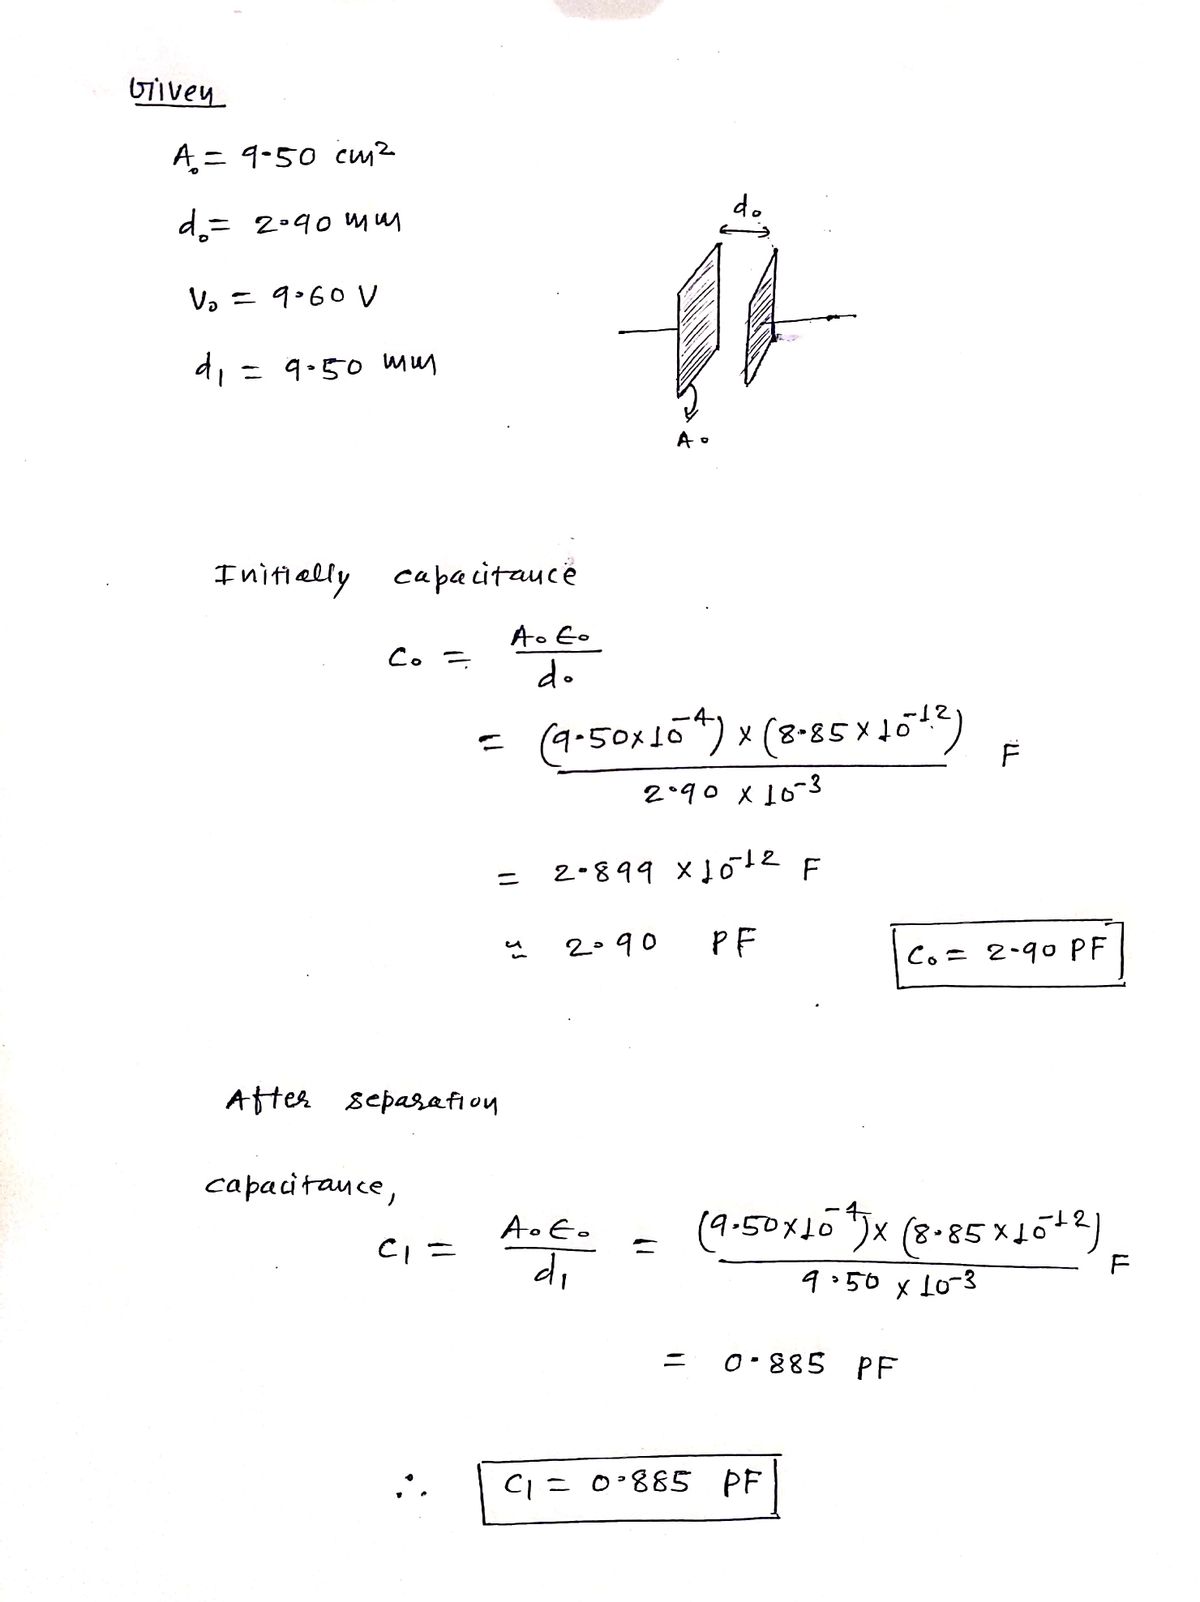 Given
A₀ = 9.50 cm²
d₀ = 2.90 mm
V₀ = 9.60 V
d₁ = 9.50 mm
d₀
A₀
Initially capacitance
C₀ = A₀ ϵ₀ / d₀
= (9.50 × 10⁻⁴) × (8.85 × 10⁻¹²) / 2.90 × 10⁻³ F
= 2.899 × 10⁻¹² F
≃ 2.90 PF
C₀ = 2.90 PF
After separation
capacitance,
C₁ = A₀ ϵ₀ / d₁ = (9.50 × 10⁻⁴) × (8.85 × 10⁻¹²) / 9.50 × 10⁻³ F
= 0.885 PF
∴ C₁ = 0.885 PF